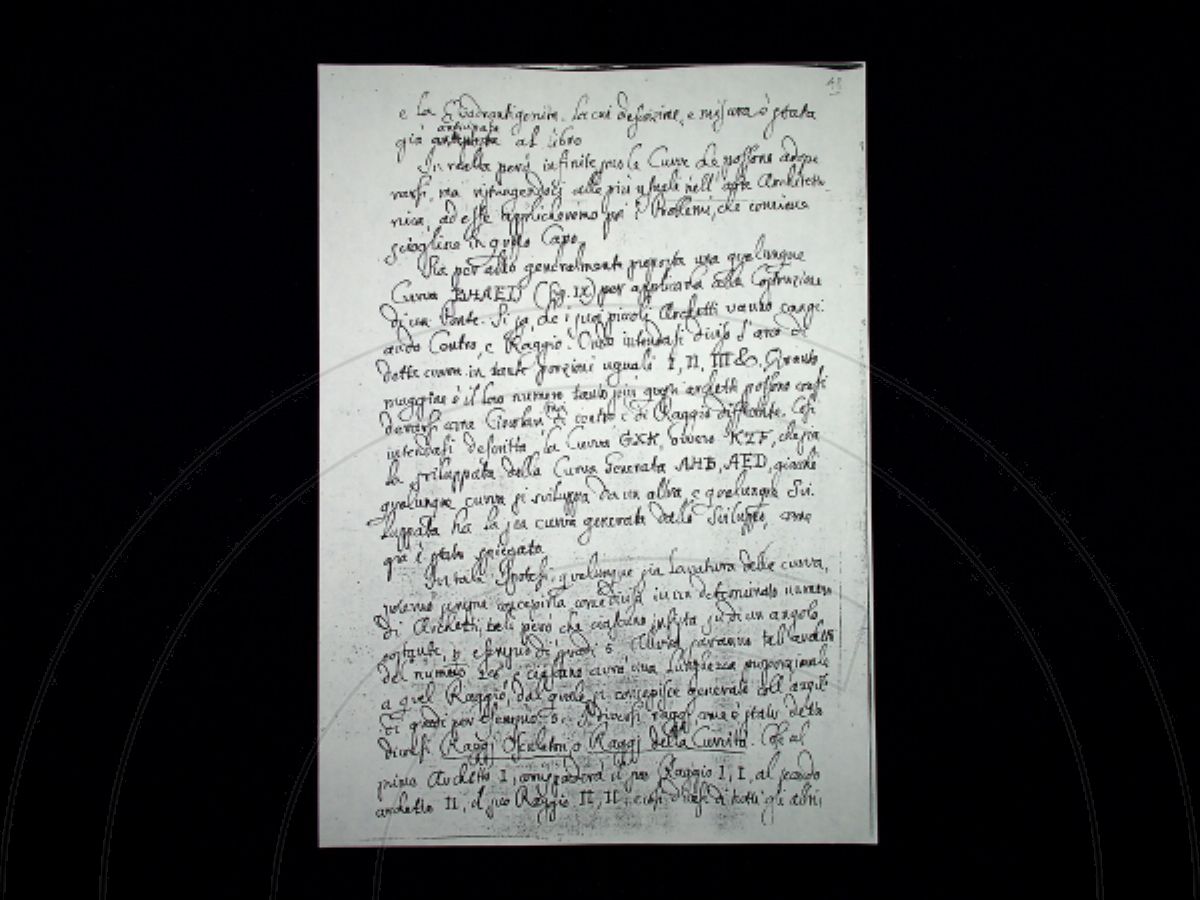 48
e la Quadrantigenita. La cui descrizione, e misura è stata
già anticipata al Libro
In realtà però infinite sono le Curve che possono adope
rarsi, ma ristringendoci alle più usuali nell'arte Architetto
nica, ad esse applicheremo poi i Problemi, che conviene
sciogliere in questo Capo.
Sia per altro generalmente proposta una qualunque
Curva BHAED (Fig. IX) per applicarla alla Costruzione
di un Ponte. Si sa, che i suoi piccoli Archetti vanno cangi
ando Centro, e Raggio. Onde intendasi diviso l'arco di
detta curva in tante porzioni uguali I, II, III &. Quanto
maggiore è il loro numero tanto più questi archetti possono consi
derarsi come Circolari di centro e di Raggio differente. Così
intendasi descritta la Curva GXK, ovvero KZF, che sia
la sviluppata della Curva Generata AHB, AED, giacché
qualunque curva si sviluppa da un altra, e qualunque Svi
luppata ha la sua curva generata dallo Sviluppo, come
già è stato spiegato
In tale Ipotesi, qualunque sia la natura della curva,
potremo sempre concepirla come divisa in un determinato numero
di Archetti, tali però che ciascuno insista su di un angolo
costante, p. esempio di gradi 5. Allora saranno tali archetti
del numero e ciascuno avrà una lunghezza proporzionale
a quel Raggio, dal quale si concepisce generato coll'angolo
di gradi per esempio 5. I diversi raggi, come è stato detto
diconsi Raggi Osculatori, o Raggi della Curvità. Così al
primo Archetto I, corrisponderà il suo Raggio I, I, al secondo
archetto II, il suo Raggio II, II, e così dicasi di tutti gli altri,